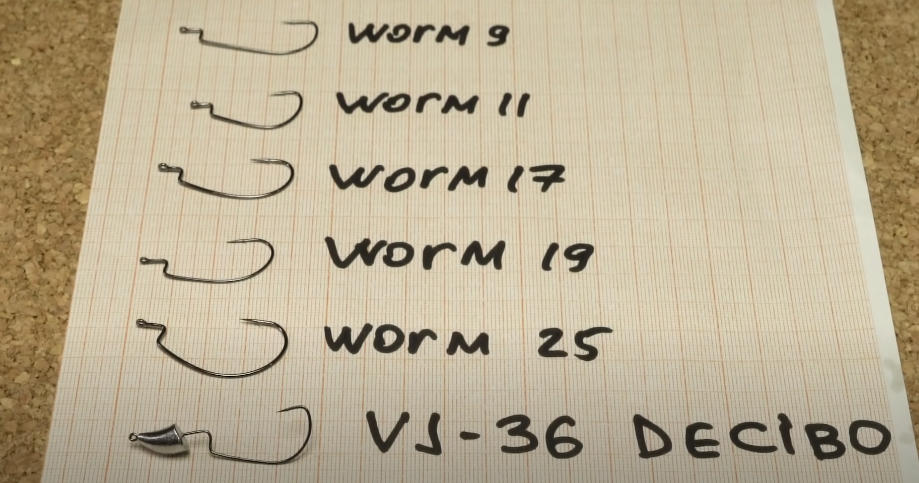 WorM 9
WorM 11
WorM 17
WorM 19
WorM 25
VJ-36 DECIBO